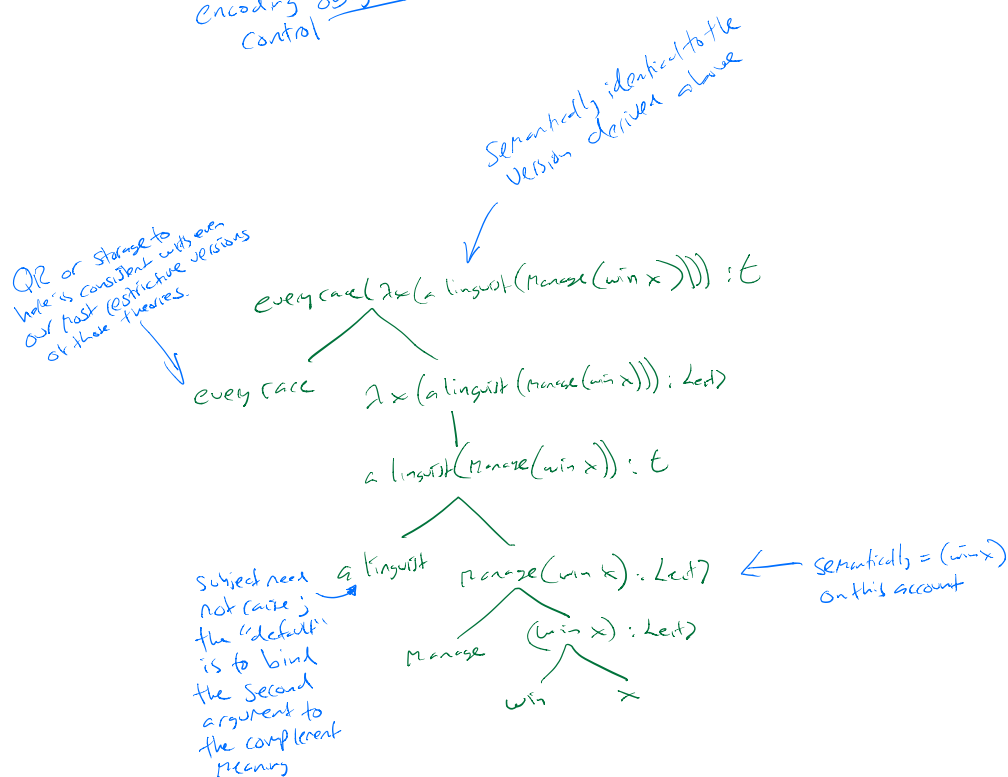 encoding
control
semantically identical to the
version derived above
QR or storage to
here is consistent with even
our most restrictive versions
of those theories.
every race (λx (a linguist (manage (win x)))) : t
every race
λx (a linguist (manage (win x))) : <e,t>
a linguist (manage (win x)) : t
a linguist
manage (win x) : <e,t>
semantically = (win x)
on this account
subject need
not raise;
the "default"
is to bind
the second
argument to
the complement
meaning
manage
(win x) : <e,t>
win
x